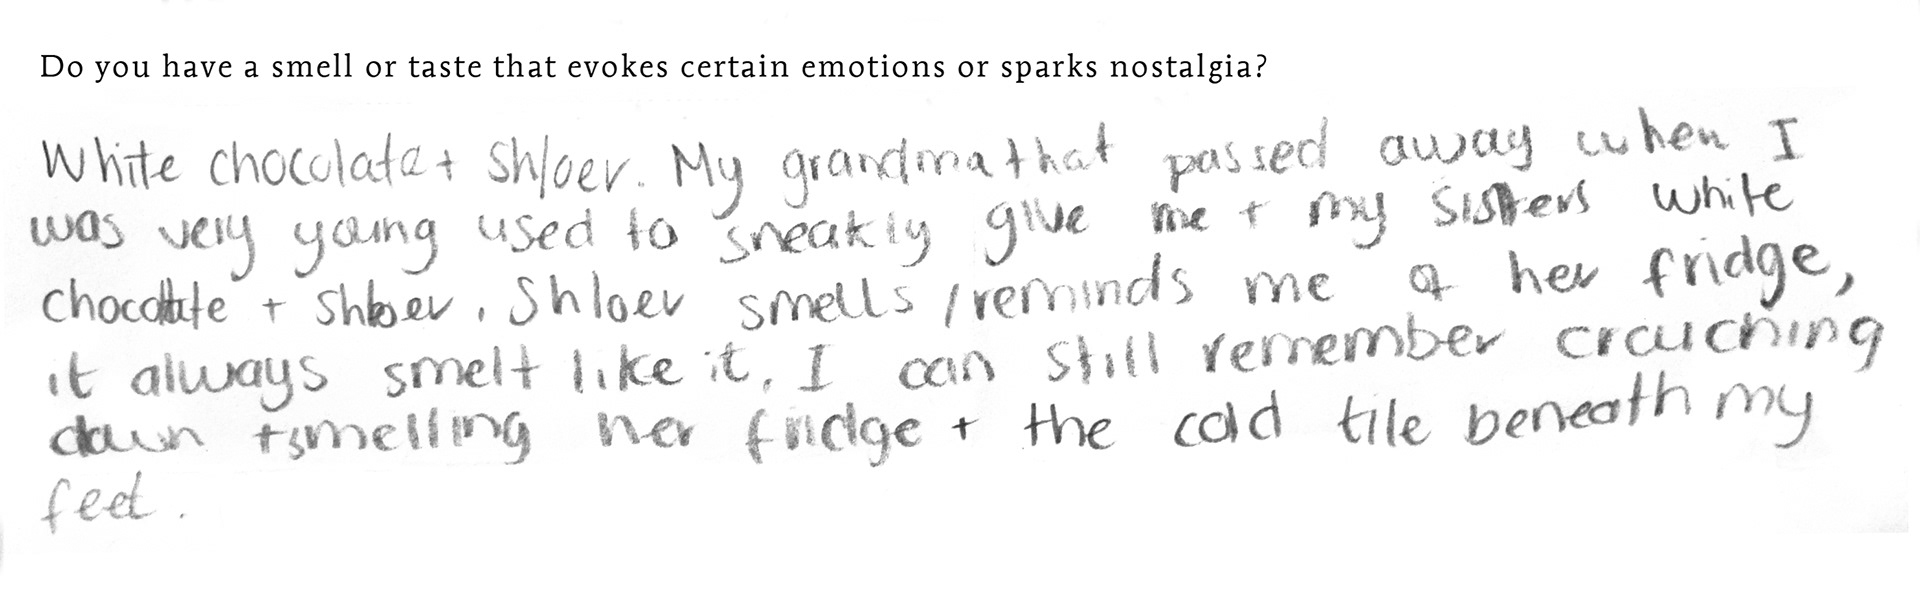 Do you have a smell or taste that evokes certain emotions or sparks nostalgia?
White chocolate + Shloer. My grandma that passed away when I
was very young used to sneakily give me + my sisters white
chocolate + Shloer. Shloer smells / reminds me of her fridge,
it always smelt like it, I can still remember crouching
down + smelling her fridge + the cold tile beneath my
feet.